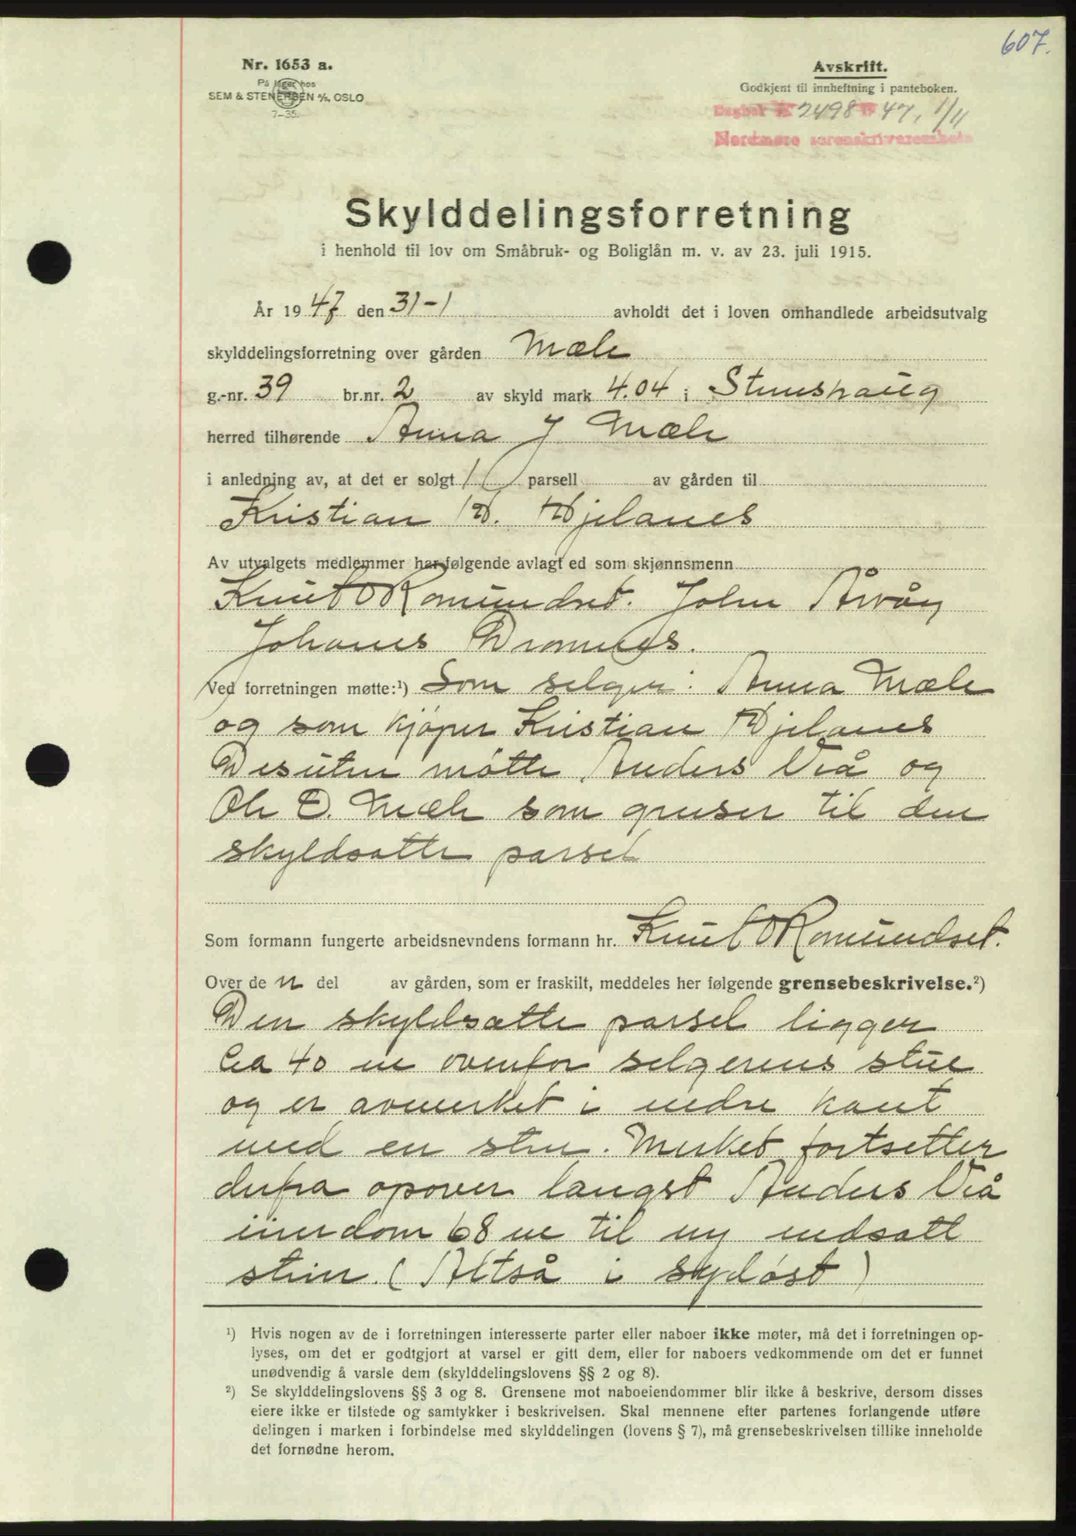 607.
Nr. 1653 a.
På lager hos
SEM & STENERSEN A/S, OSLO
7-35
Avskrift.
Godkjent til innheftning i panteboken.
Dagbok 2498 47, 1/11
Nordmøre sorenskriverembete
Skylddelingsforretning
i henhold til lov om Småbruk- og Boliglån m. v. av 23. juli 1915.
År 1947 den 31-1 avholdt det i loven omhandlede arbeidsutvalg
skylddelingsforretning over gården Mæle
g.-nr. 39 br.nr. 2 av skyld mark 4.04 i Stemshaug
herred tilhørende Anna J Mæle
i anledning av, at det er solgt 1 parsell av gården til
Kristian H. Hjelanes
Av utvalgets medlemmer har følgende avlagt ed som skjønnsmenn
Knut O Romundset. John Årvåg
Johanes Dromnes.
Ved forretningen møtte:¹) Som selger: Anna Mæle
og som kjøper Kristian Hjelanes
Desuten møtte Anders Viå og
Ole E. Mæle som grenser til den
skyldsatte parsel
Som formann fungerte arbeidsnevndens formann hr. Knut O Romundset.
Over de n del av gården, som er fraskilt, meddeles her følgende grensebeskrivelse.²)
Den skyldsatte parsel ligger
Ca 40 m ovenfor selgerens stue
og er avmerket i nedre kant
med en sten. Merket fortsetter
derfra opover langst Anders Viå
eiendom 68 m til ny nedsatt
stein. (Altså i sydøst)
¹) Hvis nogen av de i forretningen interesserte parter eller naboer ikke møter, må det i forretningen op-
lyses, om det er godtgjort at varsel er gitt dem, eller for naboers vedkommende om det er funnet
unødvendig å varsle dem (skylddelingslovens §§ 2 og 8).
²) Se skylddelingslovens §§ 3 og 8. Grensene mot naboeiendommer blir ikke å beskrive, dersom disses
eiere ikke er tilstede og samtykker i beskrivelsen. Skal mennene efter partenes forlangende utføre
delingen i marken i forbindelse med skylddelingen (lovens § 7), må grensebeskrivelsen tillike inneholde
det fornødne herom.